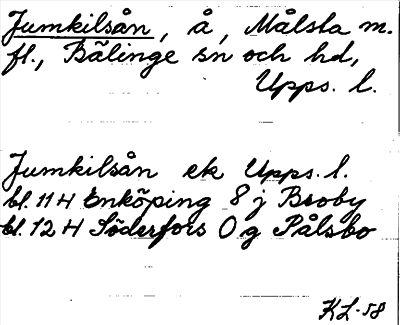 Jumkilsån, å, Målsta m.
fl., Bälinge sn och hd,
Upps. l.
Jumkilsån ek Upps. l.
bl. 11 H Enköping 8 j Broby
bl. 12 H Söderfors 0 g Pålsbo
KL-58